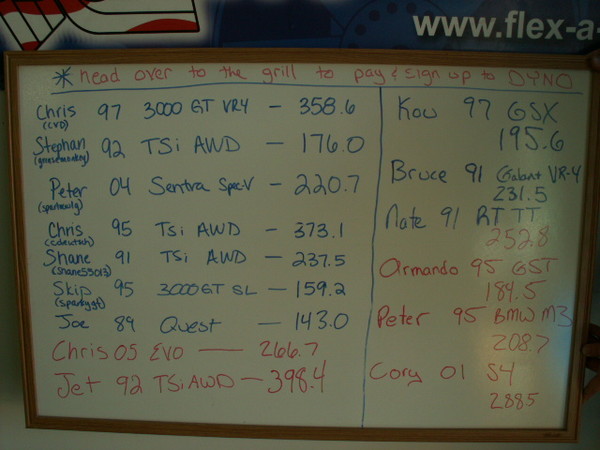 www.flex-a-
* head over to the grill to pay & sign up to DYNO
Chris 97 3000 GT VR4 - 358.6
(CVD)
Stephan 92 TSi AWD - 176.0
Peter 04 Sentra SpecV - 220.7
Chris 95 Tsi AWD - 373.1
Shane 91 Tsi AWD - 237.5
(Shane55013)
Skip 95 3000GT SL - 159.2
(sparkygt)
Joe 89 Quest - 143.0
Chris 05 EVO - 266.7
Jet 92 TSi AWD - 398.4
Kou 97 GSX
195.6
Bruce 91 Galant VR-4
231.5
Nate 91 RT TT
252.8
Armando 95 GST
184.5
Peter 95 BMW M3
208.7
Cory 01 S4
288.5